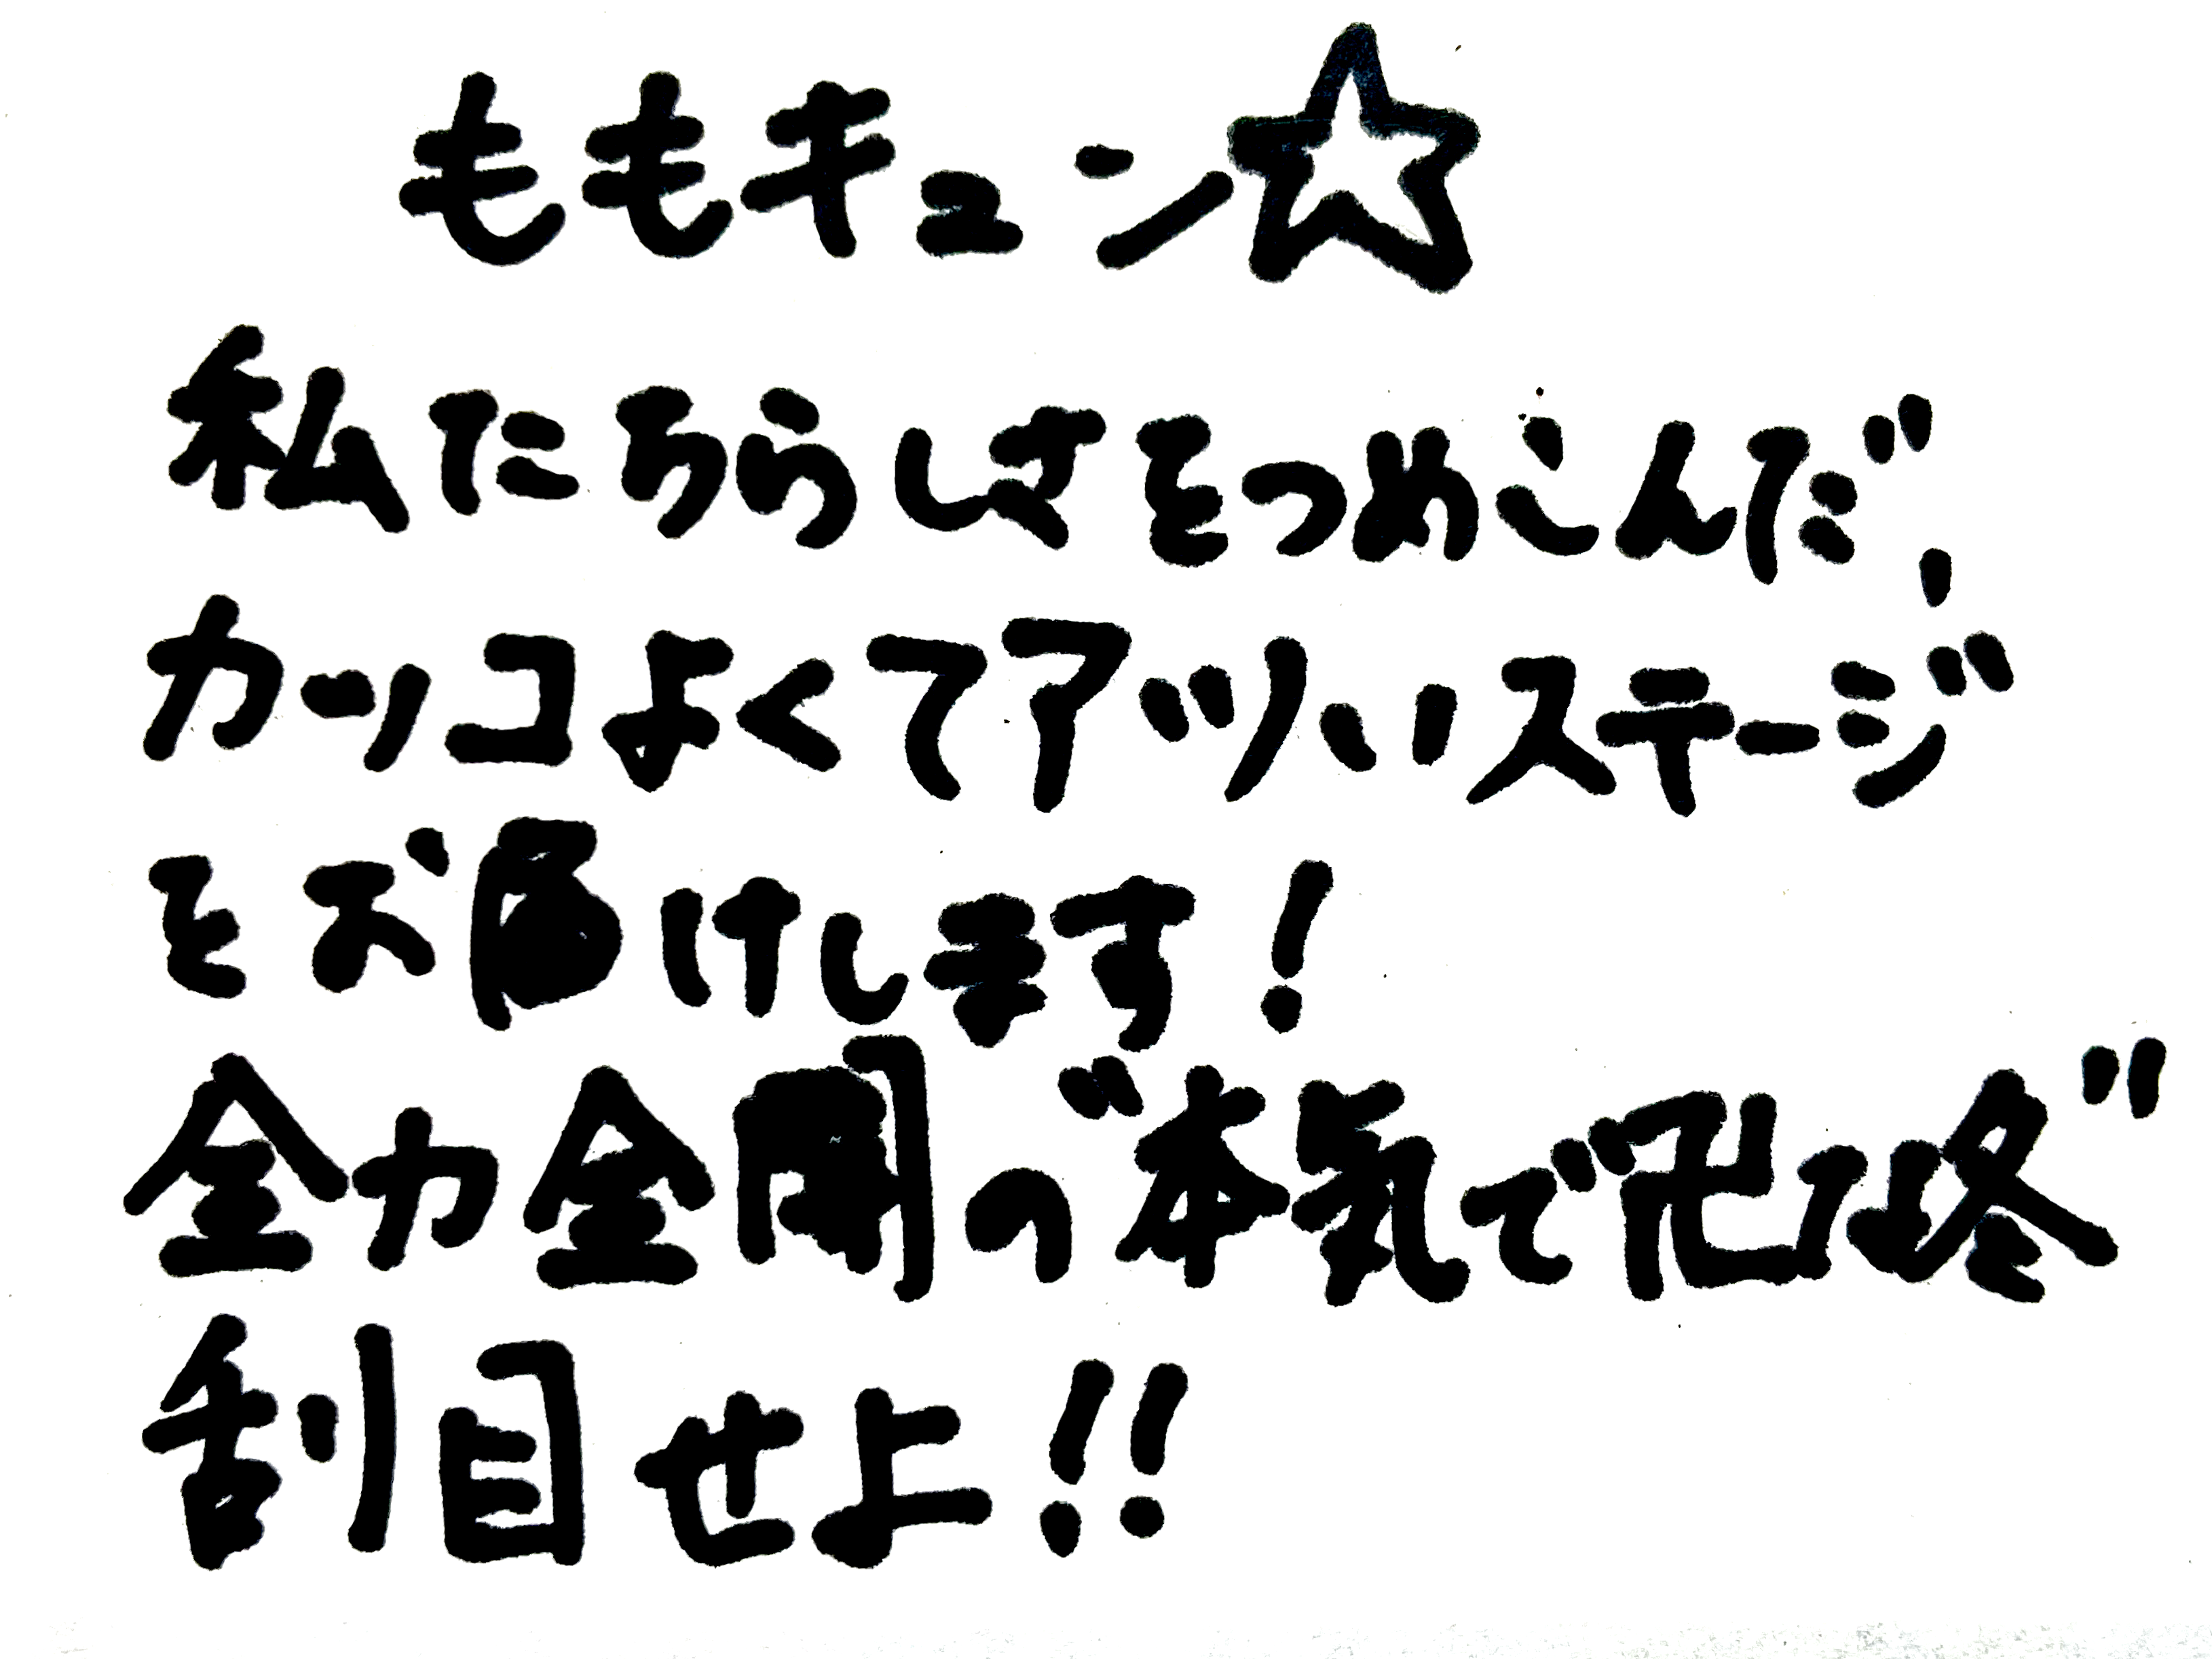 ももキュン☆
私たちらしさをつめこんだ、
カッコよくてアツいステージ
をお届けします!
全力全開の〝本気で卍な冬〟
刮目せよ!!